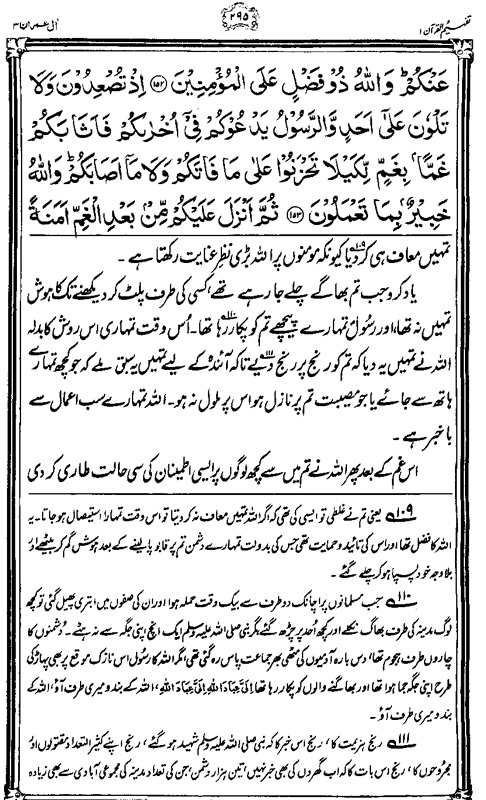 تفہیم القرآن ۱
۲۹۵
آل عمران ۳
عَنْكُمْ ؕ وَاللّٰهُ ذُوْ فَضْلٍ عَلَى الْمُؤْمِنِيْنَ ﴿۱۵۲﴾ اِذْ تُصْعِدُوْنَ وَلَا
تَلْوٗنَ عَلٰٓى اَحَدٍ وَّالرَّسُوْلُ يَدْعُوْكُمْ فِيْٓ اُخْرٰىكُمْ فَاَثَابَكُمْ
غَمًّۢا بِغَمٍّ لِّكَيْلَا تَحْزَنُوْا عَلٰى مَا فَاتَكُمْ وَلَا مَاۤ اَصَابَكُمْ ؕ وَاللّٰهُ
خَبِيْرٌۢ بِمَا تَعْمَلُوْنَ ﴿۱۵۳﴾ ثُمَّ اَنْزَلَ عَلَيْكُمْ مِّنْۢ بَعْدِ الْغَمِّ اَمَنَةً
تمہیں معاف ہی کر دیا۱۰۹ کیونکہ مومنوں پر اللہ بڑی نظرِ عنایت رکھتا ہے۔
یاد کرو جب تم بھاگے چلے جا رہے تھے، کسی کی طرف پلٹ کر دیکھنے تک کا ہوش
تمہیں نہ تھا، اور رسولؐ تمہارے پیچھے تم کو پکار رہا تھا۱۱۰۔ اُس وقت تمہاری اس روش کا بدلہ
اللہ نے تمہیں یہ دیا کہ تم کو رنج پر رنج دیے۱۱۱ تاکہ آئندہ کے لیے تمہیں یہ سبق ملے کہ جو کچھ تمہارے
ہاتھ سے جائے یا جو مصیبت تم پر نازل ہو اس پر ملول نہ ہو۔ اللہ تمہارے سب اعمال سے
با خبر ہے۔
اس غم کے بعد پھر اللہ نے تم میں سے کچھ لوگوں پر ایسی اطمینان کی سی حالت طاری کر دی
۱۰۹ یعنی تم نے غلطی تو ایسی کی تھی کہ اگر اللہ تمہیں معاف نہ کر دیتا تو اس وقت تمہارا استیصال ہو جاتا۔ یہ
اللہ کا فضل تھا اور اس کی تائید و حمایت تھی جس کی بدولت تمہارے دشمن تم پر قابو پا لینے کے بعد ہوش گم کر بیٹھے اور
بلا وجہ خود پسپا ہو کر چلے گئے۔
۱۱۰ جب مسلمانوں پر اچانک دو طرف سے بیک وقت حملہ ہوا اور ان کی صفوں میں ابتری پھیل گئی تو کچھ
لوگ مدینہ کی طرف بھاگ نکلے اور کچھ اُحد پر چڑھ گئے، مگر نبی صلی اللہ علیہ وسلم ایک انچ اپنی جگہ سے نہ ہٹے۔ دشمنوں کا
چاروں طرف ہجوم تھا، دس بارہ آدمیوں کی مٹھی بھر جماعت پاس رہ گئی تھی، مگر اللہ کا رسول اس نازک موقع پر بھی پہاڑ کی
طرح اپنی جگہ جما ہوا تھا اور بھاگنے والوں کو پکار رہا تھا اِلَیَّ عِبَادَ اللہِ اِلَیَّ عِبَادَ اللہِ، اللہ کے بندو میری طرف آؤ، اللہ کے
بندو میری طرف آؤ۔
۱۱۱ رنج ہزیمت کا، رنج اس خبر کا کہ نبی صلی اللہ علیہ وسلم شہید ہو گئے، رنج اپنے کثیر التعداد مقتولوں اور
مجروحوں کا، رنج اس بات کا کہ اب گھروں کی بھی خبر نہیں، تین ہزار دشمن، جن کی تعداد مدینہ کی مجموعی آبادی سے بھی زیادہ